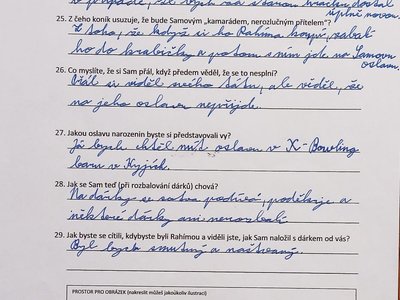 v případě, že bych sám hračku dostal
úplně novou.
25. Z čeho koník usuzuje, že bude Samovým „kamarádem, nerozlučným přítelem"?
Z toho, že když si ho Rahíma koupí, zabalí
ho do krabičky a potom s ním jde na Samovu
oslavu.
26. Co myslíte, že si Sam přál, když předem věděl, že se to nesplní?
Přál si vidět svého tátu, ale věděl, že
na jeho oslavu nepřijde.
27. Jakou oslavu narozenin byste si představovali vy?
Já bych chtěl mít oslavu v X-Bowling
baru v Kyjích.
28. Jak se Sam teď (při rozbalování dárků) chová?
Na dárky se sotva podívá, poděkuje a
některé dárky ani nerozbalí.
29. Jak byste se cítili, kdybyste byli Rahímou a viděli jste, jak Sam naložil s dárkem od vás?
Byl bych smutný a naštvaný.
PROSTOR PRO OBRÁZEK (nakreslit můžeš jakoukoliv ilustraci)